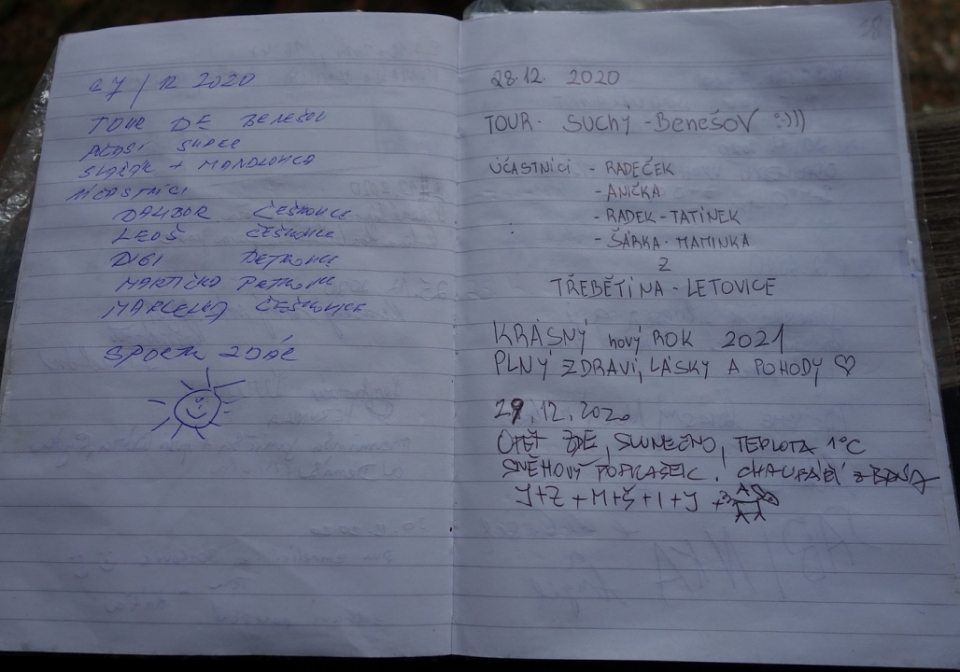 27/12 2020
TOUR DE BENEŠOV
POČASÍ SUPER
SVAŘÁK +
ÚČASTNÍCI
DALIBOR ČEŠKOVIC
LEOŠ ČEŠKOVIC
MARTIČKA
MARCELKA ČEŠKOVIC
SPORTU ZDAR
28.12. 2020
TOUR- SUCHÝ -BENEŠOV :)))
ÚČASTNÍCI - RADEČEK
- ANIČKA
- RADEK-TATÍNEK
- ŠÁRKA-MAMINKA
Z
TŘEBĚTÍNA-LETOVICE
KRÁSNÝ NOVÝ ROK 2021
PLNÝ ZDRAVÍ, LÁSKY A POHODY ♡
29.12.2020
OPĚT ZDE, SLUNEČNO, TEPLOTA 1°C
SNĚHOVÝ POPRAŠEK. CHALUPÁŘI Z BRNA
J+Z+M+Š+I+J +